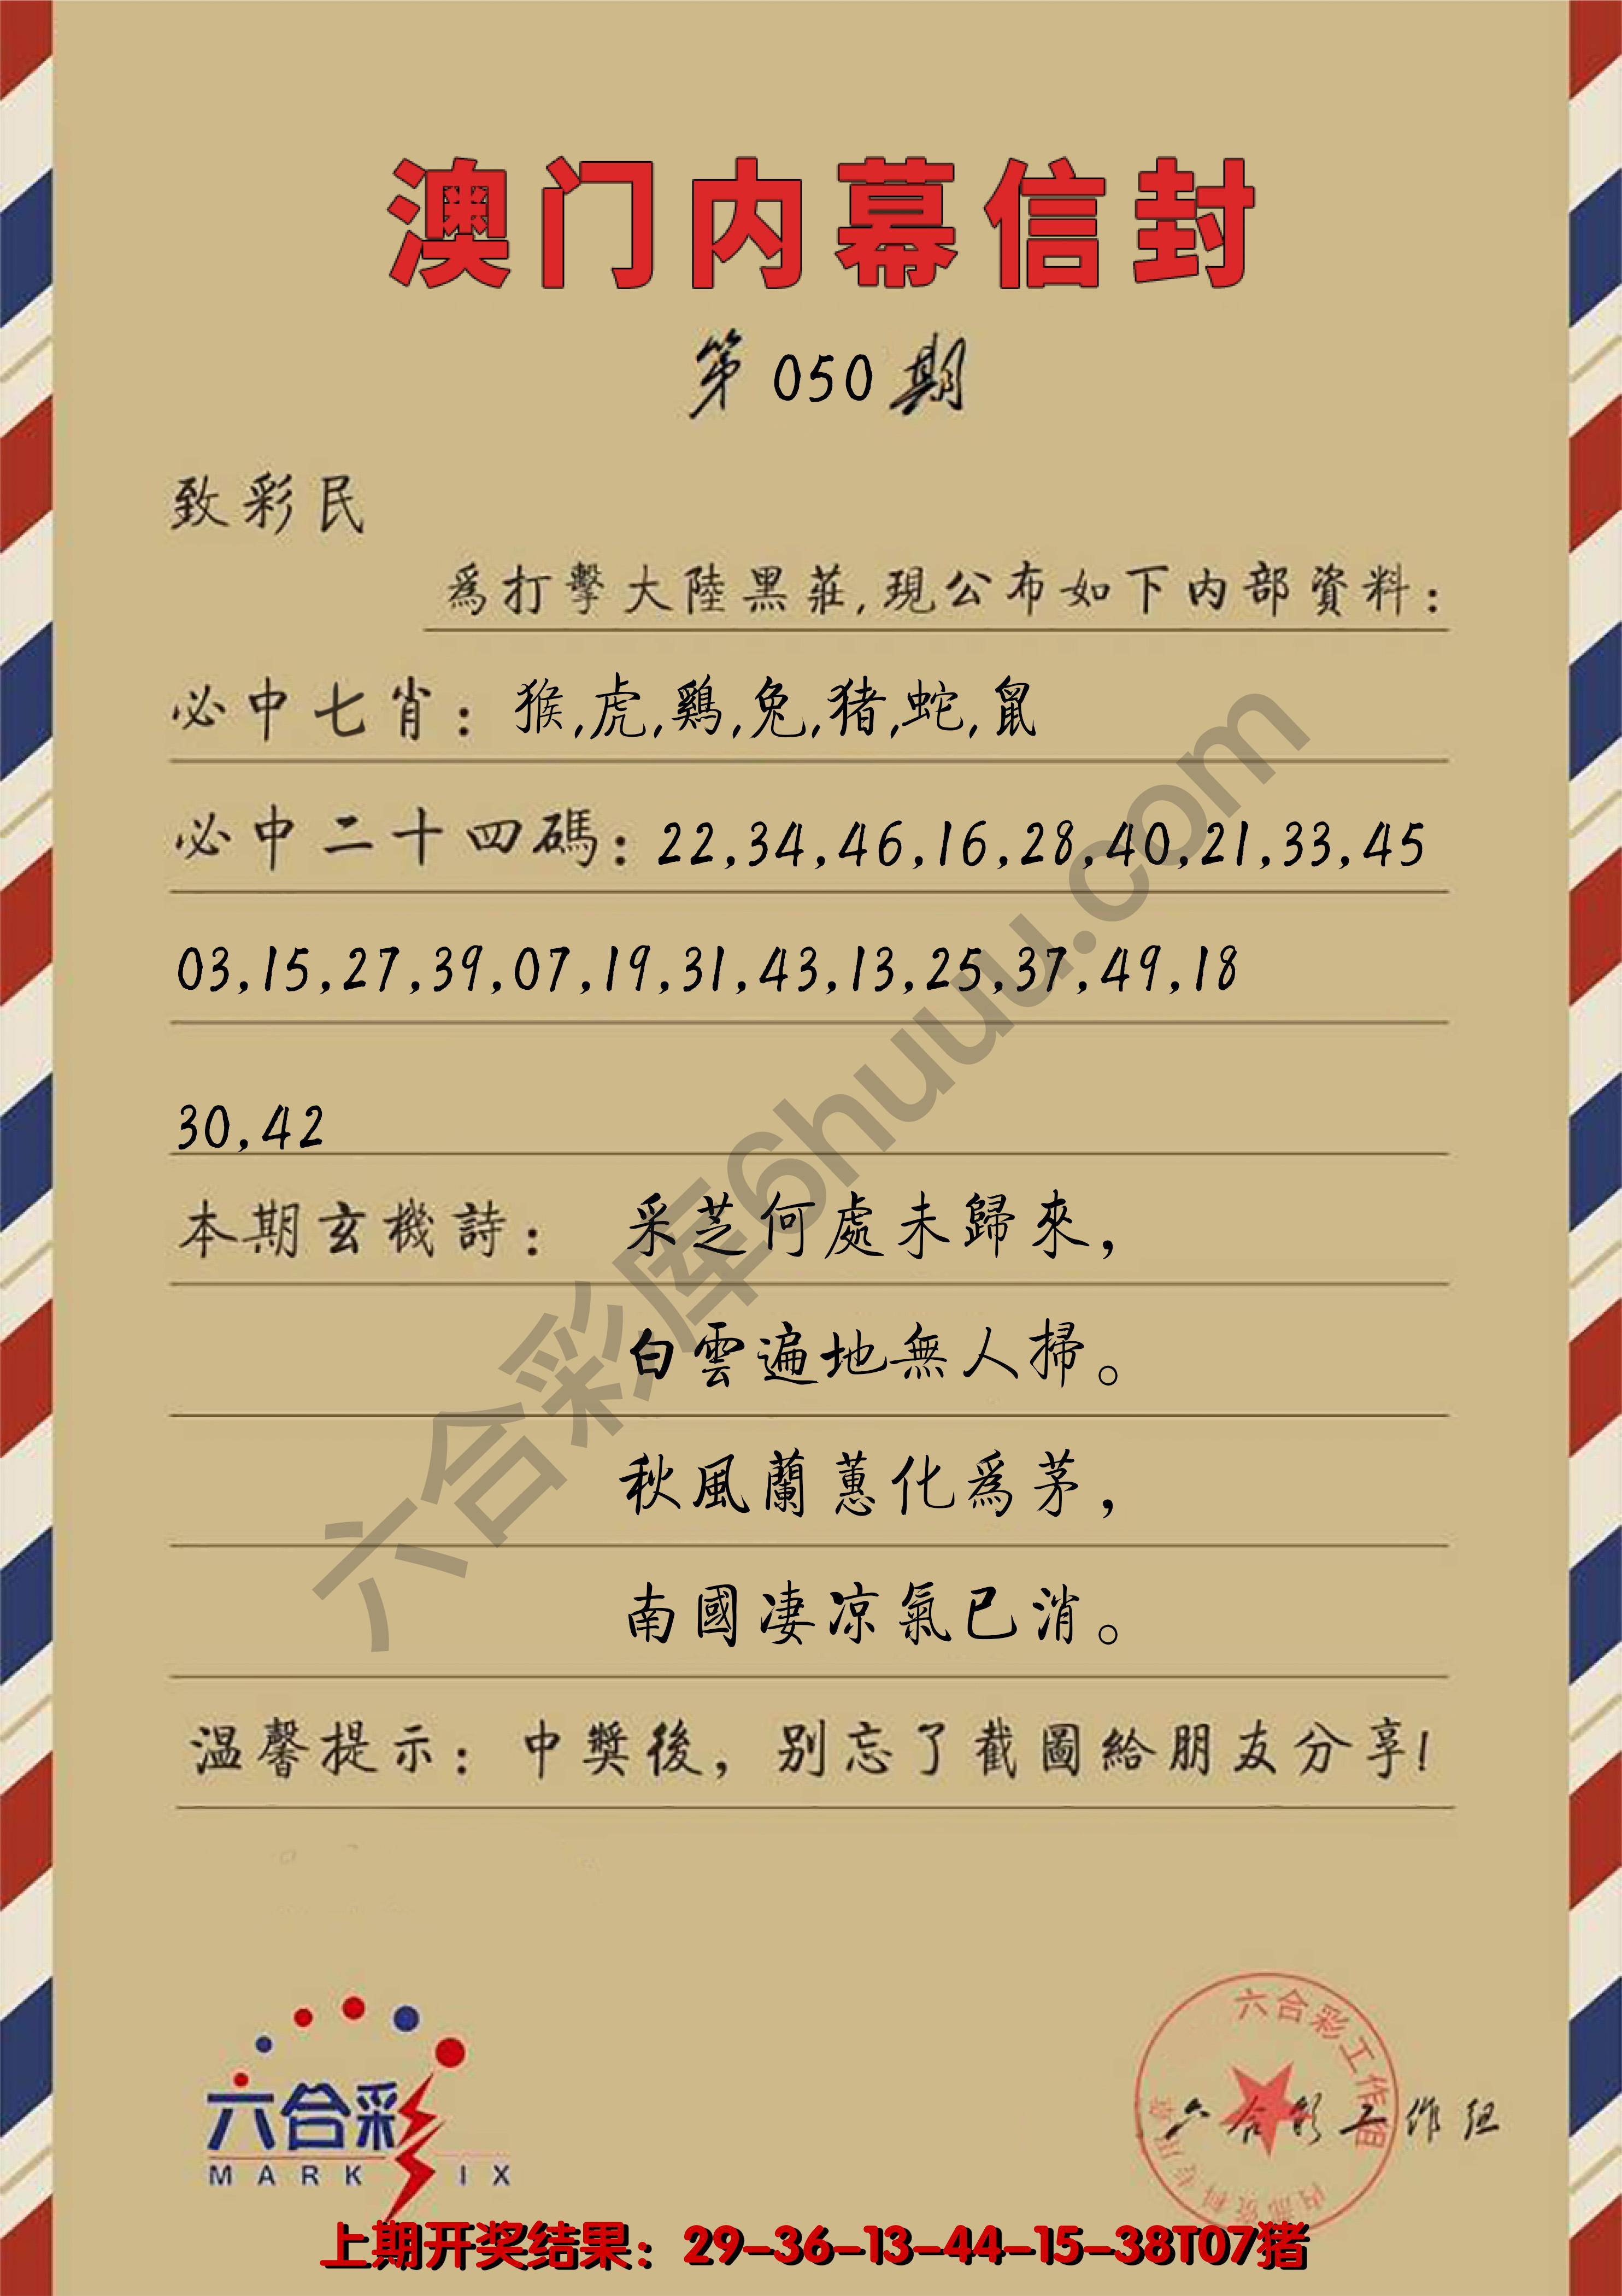 澳门内幕信封
第050期
致彩民
爲打擊大陸黑莊,現公布如下内部資料:
必中七肖: 猴,虎,鷄,兔,猪,蛇,鼠
必中二十四碼: 22,34,46,16,28,40,21,33,45
03,15,27,39,07,19,31,43,13,25,37,49,18
30,42
本期玄機詩: 采芝何處未歸來,
白雲遍地無人掃。
秋風蘭蕙化爲茅,
南國凄凉氣已消。
温馨提示: 中獎後, 别忘了截圖給朋友分享!
六合彩库6huuu.com
六合彩
MARK SIX
六合彩工作组
内部资料专用章
六合彩工作组
上期开奖结果: 29-36-13-44-15-38T07猪